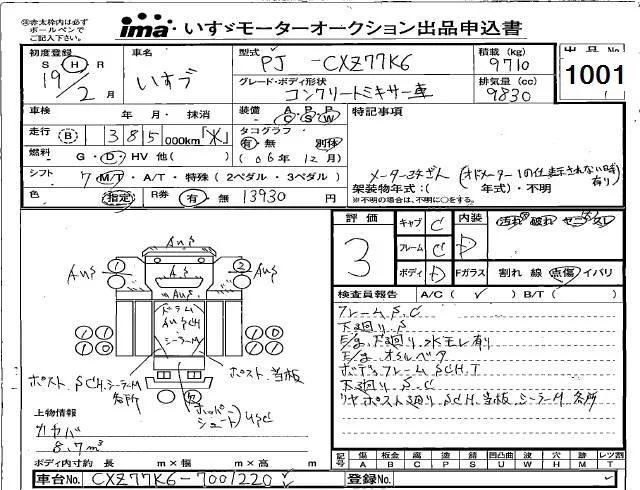 ㊟赤太枠内は必ず
ボールペンで
ご記入下さい。
ima いすゞモーターオークション出品申込書
初度登録
S H R
19年
2月
車名
いすゞ
型式
PJ -CXZ77K6
グレード・ボディ形状
コンクリートミキサー車
積載 (kg)
9710
排気量 (cc)
9830
出品No
1001
車検 年 月・抹消
装備 A/C P/S P/W
特記事項
走行 B 385 000km
タコグラフ
有・無 別体
燃料 G・D・HV 他( )
(06年12月)
シフト 7 M/T・A/T・特殊(2ペダル・3ペダル)
架装物年式:( 年式)・不明
※不明の場合は、不明に○をする。
色 指定 R券 有・無 13930 円
評価
3
キャブ C
フレーム C
ボディ D
内装
D
汚れ 破れ
Fガラス 割れ 線 点傷 イバリ
検査員報告 A/C( ✓ ) B/T( )
フレーム S.C
下廻り.S
E/g.下廻り.水モレ有り
ボディフレーム SCH.T
下廻り.S.C
リヤポスト廻り SCH.当板 シーラーM 各所
1
2
ドラム
シーラーM
ポスト SCH.シーラーM
各所
ポスト.当板
ホッパー
シュート
上物情報
カヤバ
8.7m³
ボディ内寸約 長 m×幅 m×高 m
記号
傷 A
板金 B
腐 C
塗 P
錆 S
凹凸曲 U
波 W
穴 H
跡 M
レツ割 T
車台No. CXZ77K6-7001220
登録No.